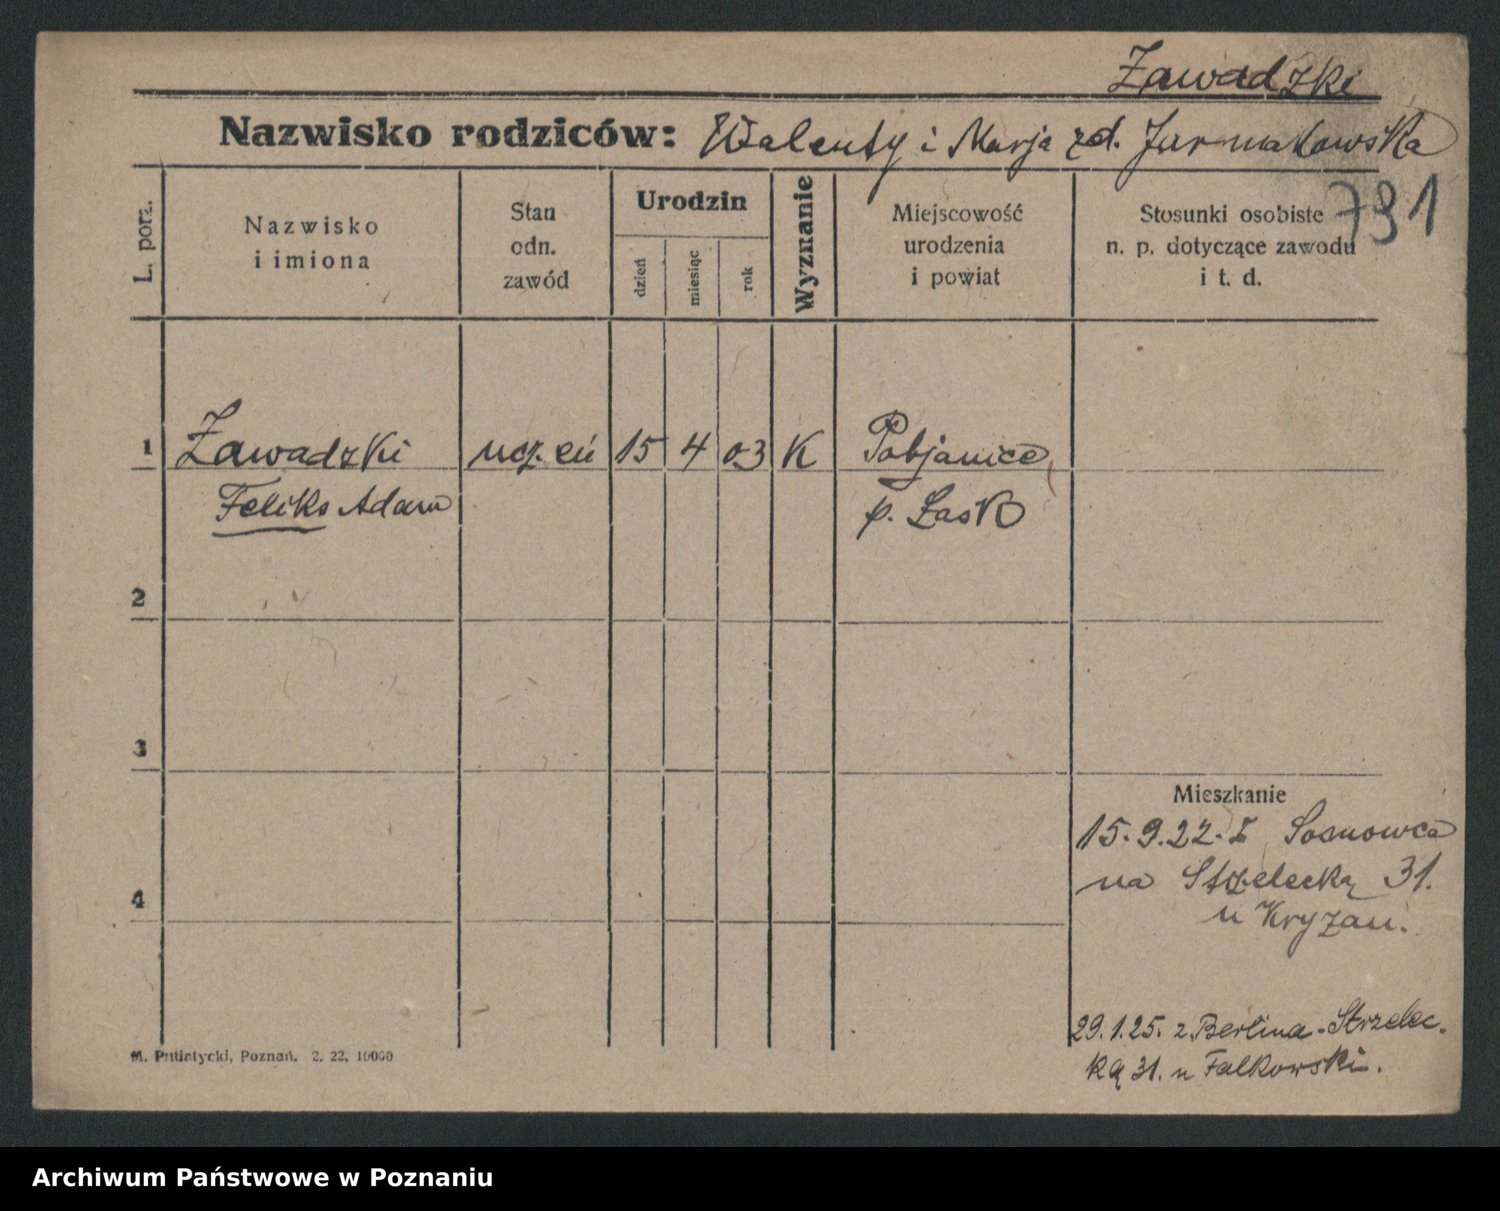 Zawadzki
Nazwisko rodziców: Walenty i Marja zd. Jarmakowska
791
L. porz.
Nazwisko i imiona
Stan odn. zawód
Urodzin
dzień
miesiąc
rok
Wyznanie
Miejscowość urodzenia i powiat
Stosunki osobiste n. p. dotyczące zawodu i t. d.
1 Zawadzki uczeń 15 4 03 K Pabjanice
Feliks Adam p. Łask
2
3
4
Mieszkanie
15.9.22. Z Sosnowca
na Strzelecką 31.
u Kryzan.
29.1.25. z Berlina - Strzelec.
ką 31. u Falkowski.
M. Putiatycki, Poznań. 2. 22, 10000
Archiwum Państwowe w Poznaniu